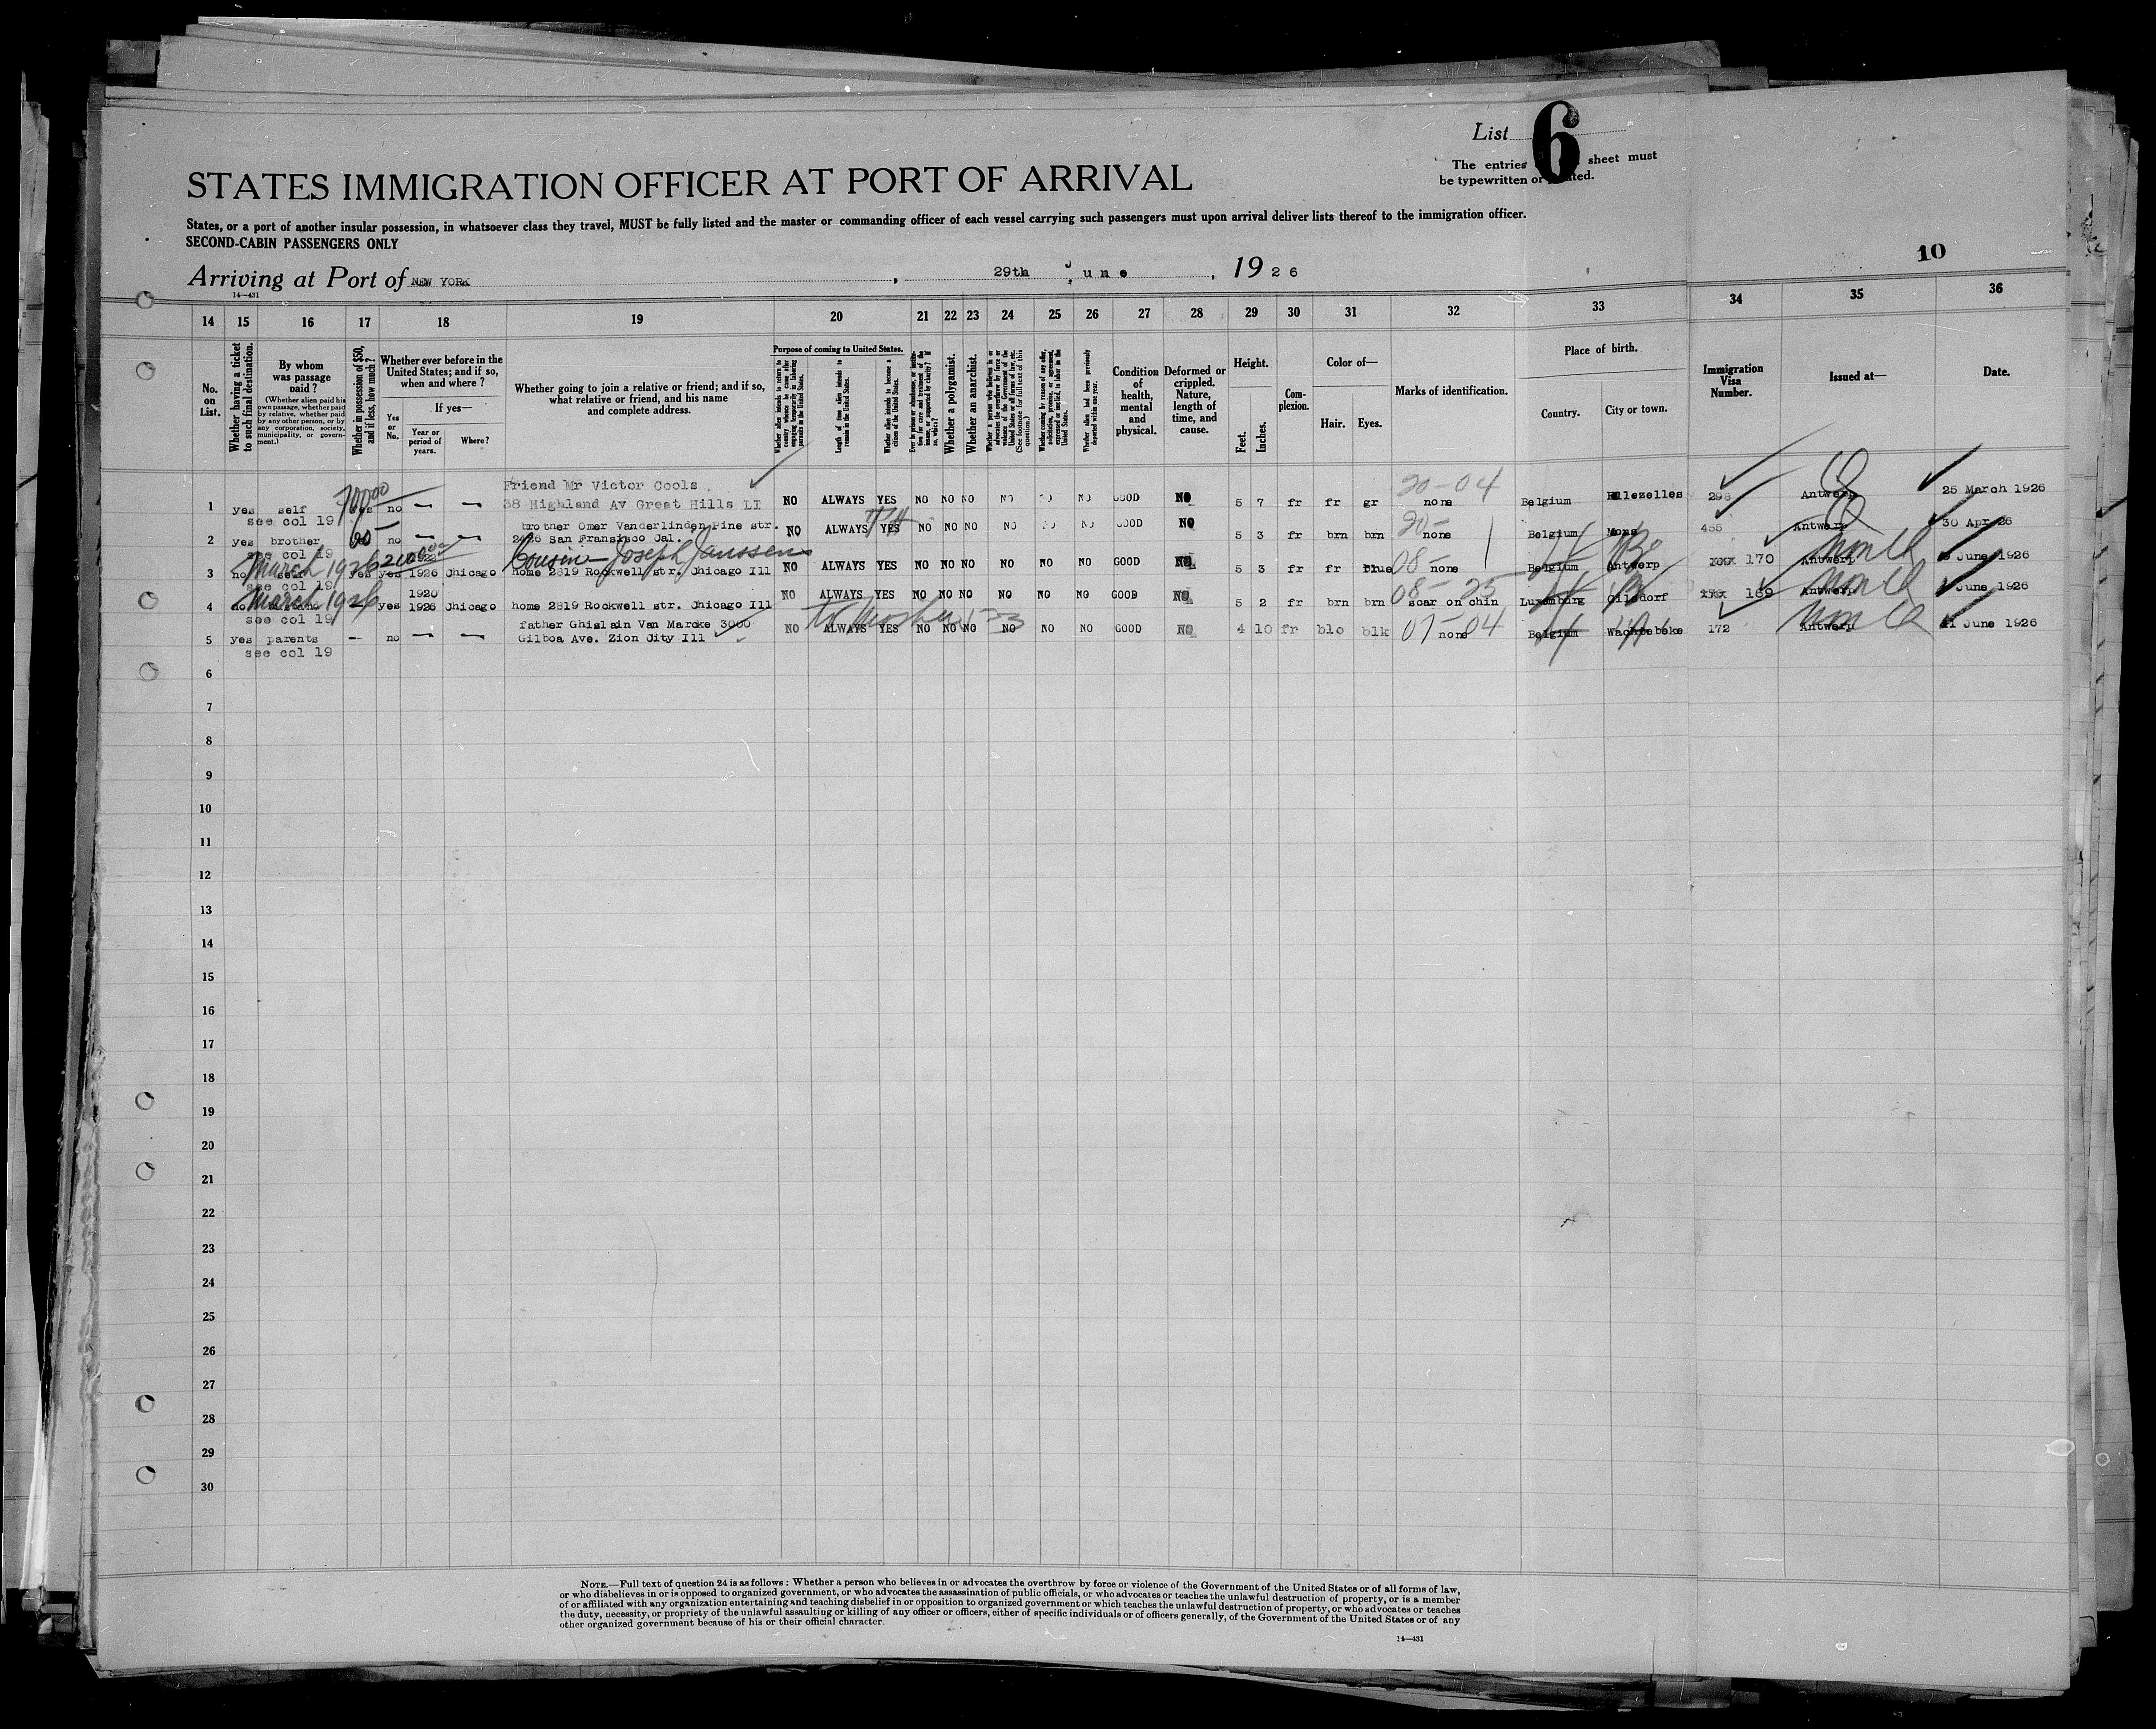 List 6
The entries sheet must
be typewritten or
STATES IMMIGRATION OFFICER AT PORT OF ARRIVAL
States, or a port of another insular possession, in whatsoever class they travel, MUST be fully listed and the master or commanding officer of each vessel carrying such passengers must upon arrival deliver lists thereof to the immigration officer.
SECOND-CABIN PASSENGERS ONLY
10
Arriving at Port of NEW YORK, 29th June, 1926
14—431
14 15 16 17 18 19 20 21 22 23 24 25 26 27 28 29 30 31 32 33 34 35 36
No. on List.
Whether having a ticket to such final destination.
By whom was passage paid?
(Whether alien paid his own passage, whether paid by relative, whether paid by any other person, or by any corporation, society, municipality, or government.)
Whether in possession of $50, and if less, how much?
Whether ever before in the United States; and if so, when and where?
Yes or No.
If yes—
Year or period of years.
Where?
Whether going to join a relative or friend; and if so, what relative or friend, and his name and complete address.
Purpose of coming to United States.
Whether alien intends to return to country whence he came after engaging temporarily in laboring pursuits in the United States.
Length of time alien intends to remain in the United States.
Whether alien intends to become a citizen of the United States.
Whether a polygamist.
Whether an anarchist.
Whether alien had been previously deported within one year.
Condition of health, mental and physical.
Deformed or crippled. Nature, length of time, and cause.
Height.
Feet.
Inches.
Complexion.
Color of—
Hair.
Eyes.
Marks of identification.
Place of birth.
Country.
City or town.
Immigration Visa Number.
Issued at—
Date.
Friend Mr Victor Cools
1 yes self 70000 yes no — — 38 Highland Av Great Hills LI NO ALWAYS YES NO NO NO NO NO NO GOOD NO 5 7 fr fr gr 20-04 none Belgium Ellezelles 298 Antwerp 25 March 1926
see col 19
brother Omer Vanderlinden Pine str.
2 yes brother 60 no — — 2426 San Fransisco Cal. NO ALWAYS YES NO NO NO NO NO NO GOOD NO 5 3 fr brn brn 20- none Belgium Mons 455 Antwerp 30 Apr 26
see col 19
March 1926 1922 Cousin Joseph Janssens
3 no self yes yes 1926 Chicago home 2819 Rockwell str. Chicago Ill NO ALWAYS YES NO NO NO NO NO NO GOOD NO 5 3 fr fr blue 08- none Belgium Antwerp 170 Antwerp June 1926
see col 19
March 1926 1920
4 no yes 1926 Chicago home 2819 Rockwell str. Chicago Ill NO ALWAYS YES NO NO NO NO NO NO GOOD NO 5 2 fr brn brn 08- 25 scar on chin Luxemburg Gilsdorf 169 Antwerp June 1926
see col 19
father Ghislain Van Marcke 3000
5 yes parents — no — — Gilboa Ave. Zion City Ill NO ALWAYS YES NO NO NO NO NO NO GOOD NO 4 10 fr blo blk 07-04 none Belgium Wachtebeke 172 Antwerp 11 June 1926
see col 19
6
7
8
9
10
11
12
13
14
15
16
17
18
19
20
21
22
23
24
25
26
27
28
29
30
NOTE.—Full text of question 24 is as follows: Whether a person who believes in or advocates the overthrow by force or violence of the Government of the United States or of all forms of law,
or who disbelieves in or is opposed to organized government, or who advocates the assassination of public officials, or who advocates or teaches the unlawful destruction of property, or is a member
of or affiliated with any organization entertaining and teaching disbelief in or opposition to organized government or which teaches the unlawful destruction of property, or who advocates or teaches
the duty, necessity, or propriety of the unlawful assaulting or killing of any officer or officers, either of specific individuals or of officers generally, of the Government of the United States or of any
other organized government because of his or their official character.
14—431